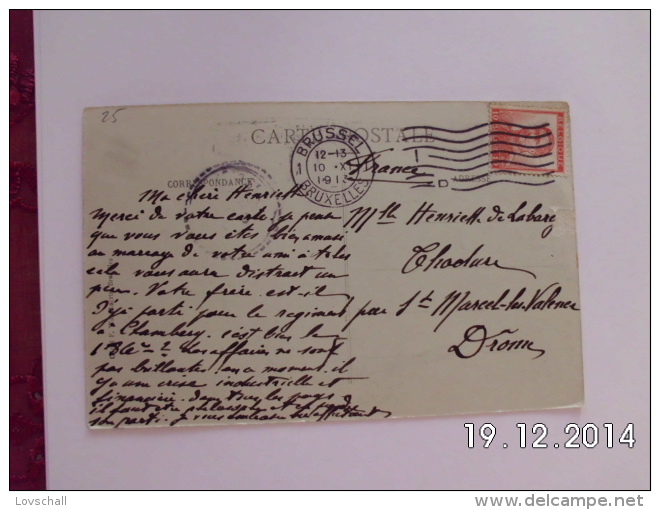 25
CARTE POSTALE
BRUSSEL
1
12-13
10 XI
1913
BRUXELLES
France
BELGIQUE
CORRESPONDANCE
ADRESSE
D
Ma chère Henriette
Merci de votre carte. je pense
que vous vous êtes bien amusé
au mariage de votre ami
cela vous aura distrait un
peu. Votre frère est-il
déjà parti pour le regiment
à Chambery. c'est bien le
Les affaires ne sont
pas brillantes en ce moment. il
y a une crise industrielle et
financière dans tous les pays
il faut être philosophe et
son parti. Je vous embrasse
Mlle Henriette de Labarg
par St Marcel-les-Valence
Drôme
19.12.2014
Lovschall
delcampe.net